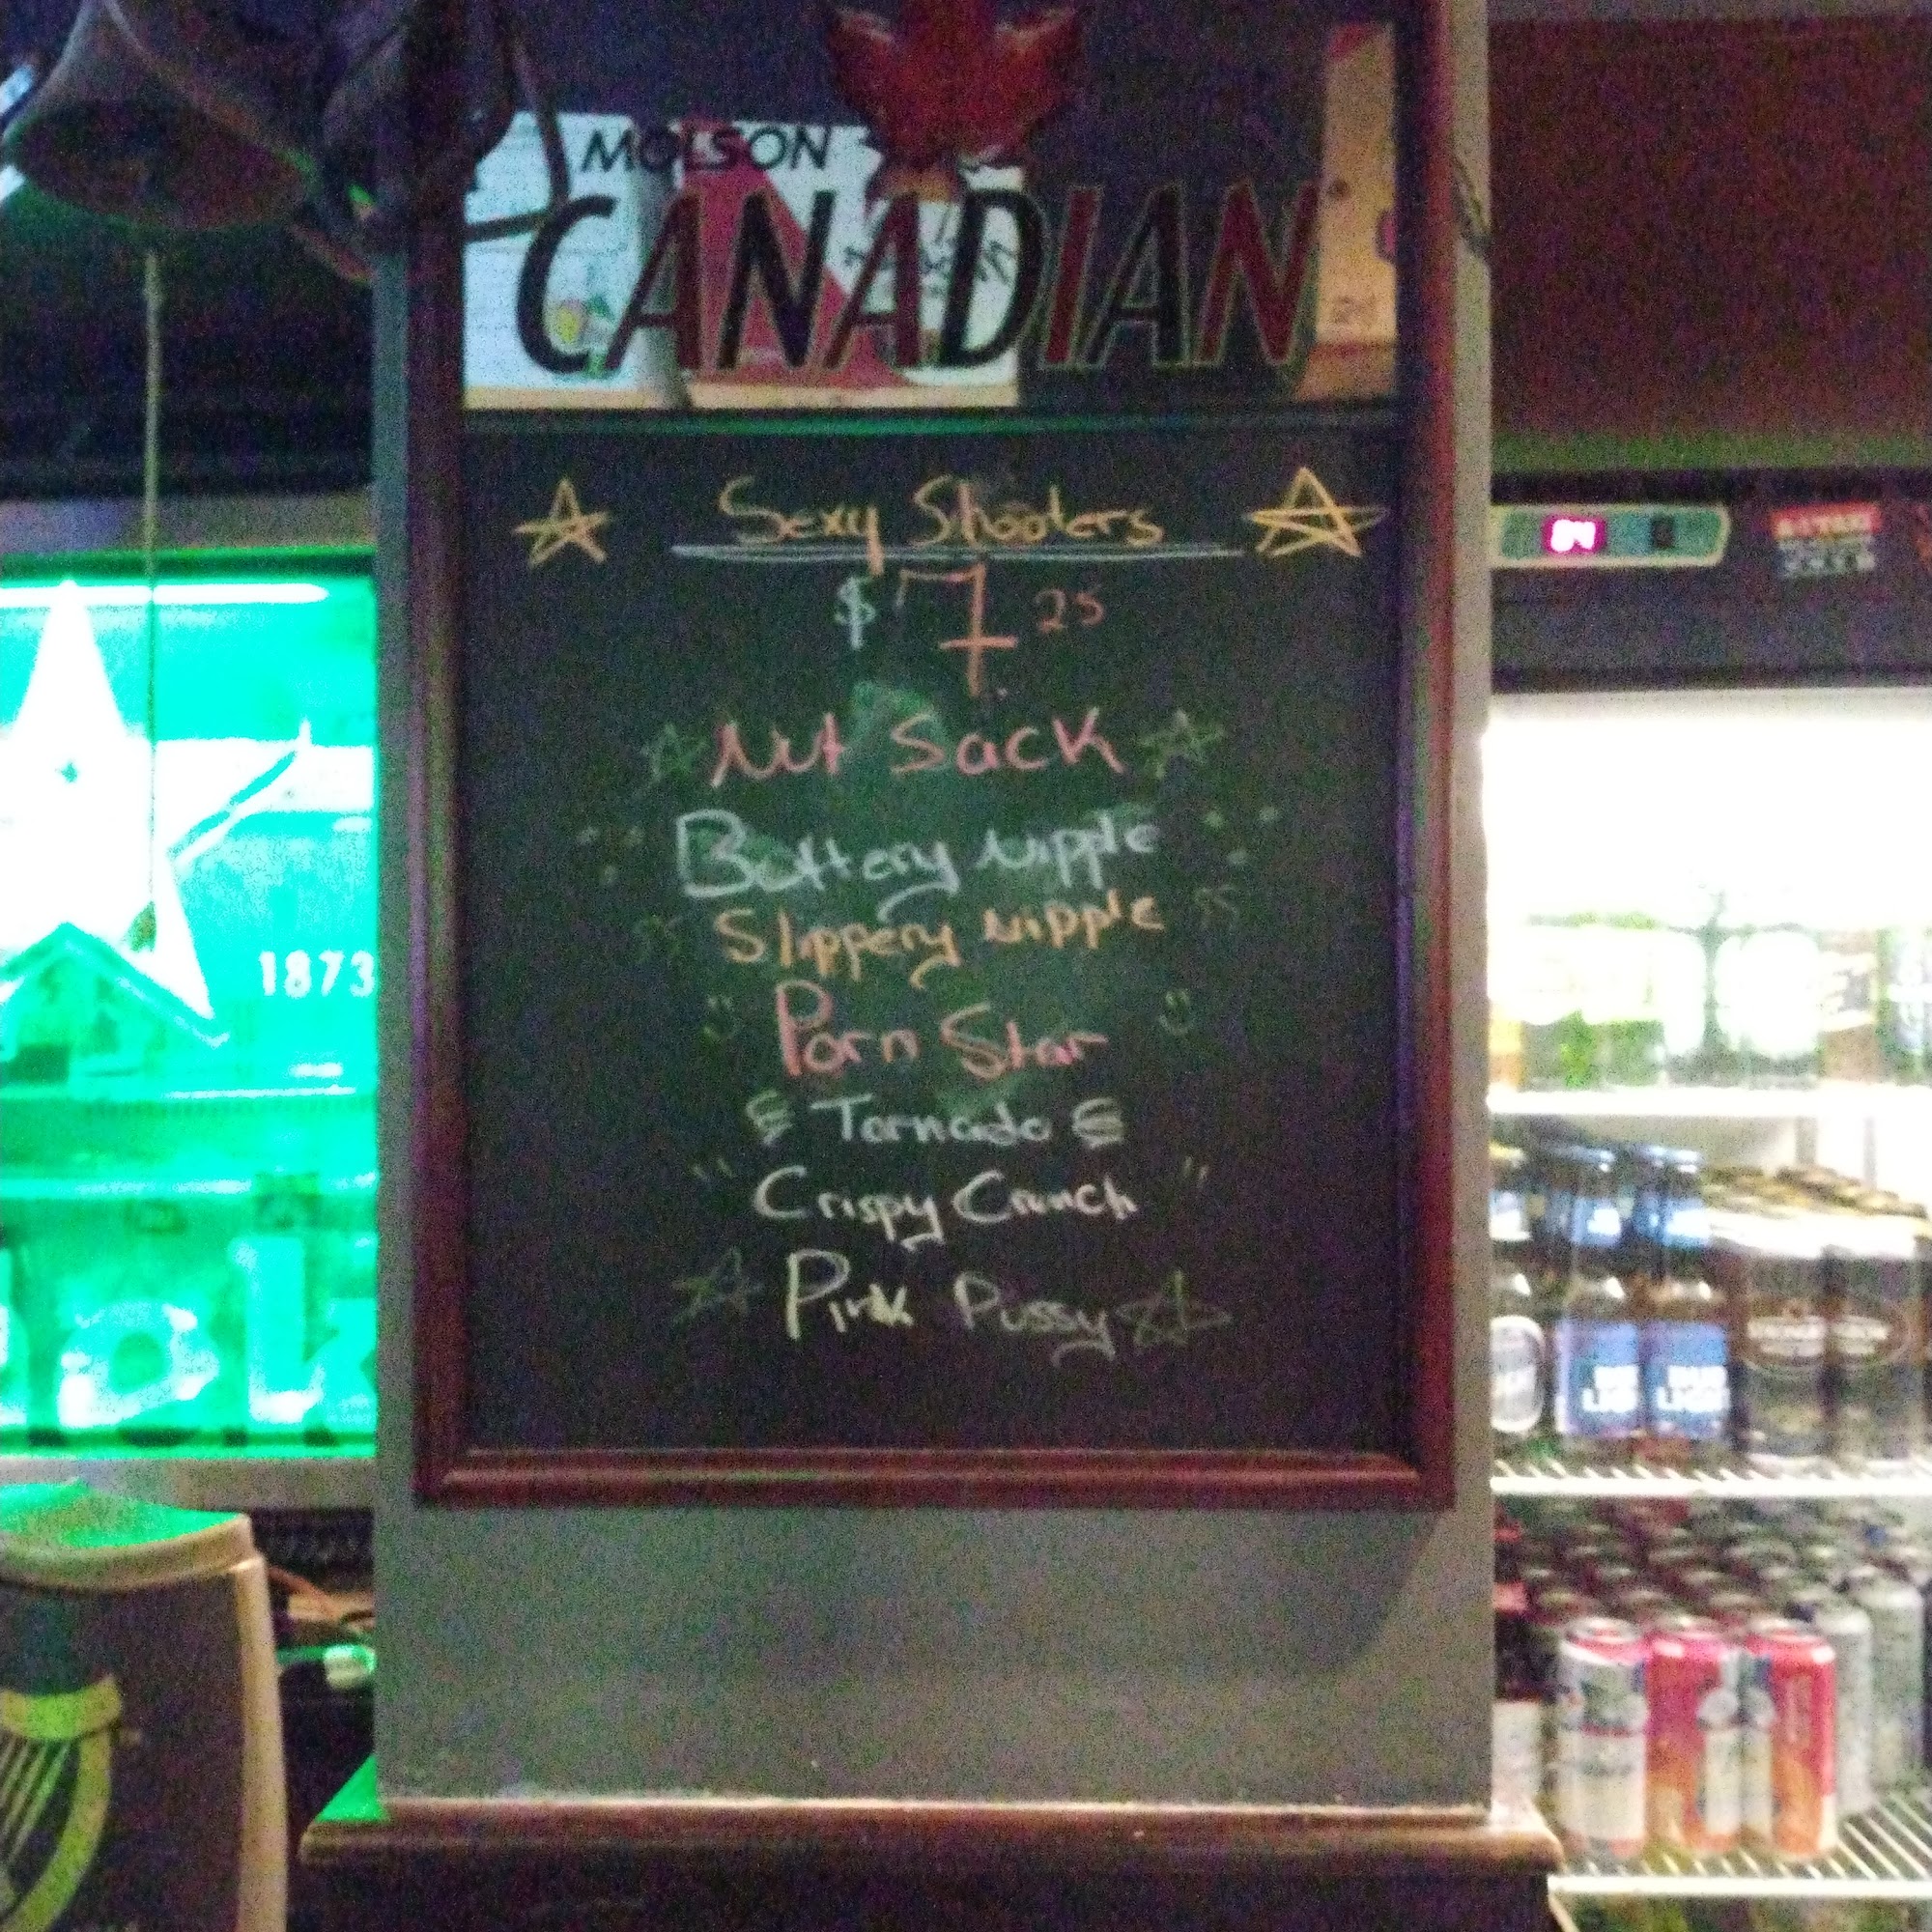 MOLSON
CANADIAN
Sexy Shooters
$7.25
Nut Sack
Buttery Nipple
Slippery Nipple
Porn Star
Tornado
Crispy Crunch
Pink Pussy
1873
84
BUD
LIGHT